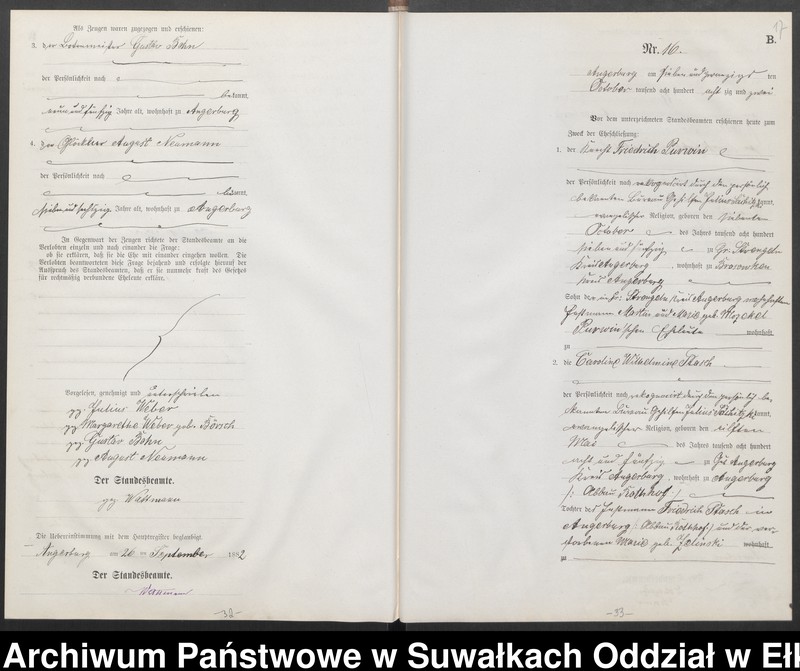 Als Zeugen waren zugezogen und erschienen:
3. der Botenmeister Gustav Böhn
der Persönlichkeit nach
bekannt,
neun und fünfzig Jahre alt, wohnhaft zu Angerburg
4. der Glöckner August Neumann
der Persönlichkeit nach
bekannt,
sieben und sechszig Jahre alt, wohnhaft zu Angerburg
In Gegenwart der Zeugen richtete der Standesbeamte an die
Verlobten einzeln und nach einander die Frage:
ob sie erklären, daß sie die Ehe mit einander eingehen wollen. Die
Verlobten beantworteten diese Frage bejahend und erfolgte hierauf der
Ausspruch des Standesbeamten, daß er sie nunmehr kraft des Gesetzes
für rechtmäßig verbundene Eheleute erkläre.
Vorgelesen, genehmigt und unterschrieben
gez. Julius Weber
gez. Margarethe Weber geb. Börsch
gez. Gustav Böhn
gez. August Neumann
Der Standesbeamte.
gez. Wattmann
Die Uebereinstimmung mit dem Hauptregister beglaubigt.
Angerburg am 26 ten September 1882
Der Standesbeamte.
Wattmann
-32-
17
B.
Nr. 16.
Angerburg am sieben und zwanzigs ten
October tausend acht hundert acht zig und zwei
Vor dem unterzeichneten Standesbeamten erschienen heute zum
Zweck der Eheschließung:
1. der Knecht Friedrich Purwin
der Persönlichkeit nach rekognoscirt durch den persönlich
bekannten Büreau Gehilfen Julius kannt,
evangelischer Religion, geboren den siebenten
October des Jahres tausend acht hundert
sieben und fünfzig zu Gr. Strengeln
Kreis Angerburg, wohnhaft zu Brosowken
Kreis Angerburg
Sohn der in Kl: Strengeln, Kreis Angerburg wohnhaften
Instmann Martin und Marie geb.
Purwin'schen Eheleute wohnhaft
zu
2. die Caroline Wilhelmine Stasch
der Persönlichkeit nach rekognoscirt durch den persönlich be-
kannten Büreau Gehilfen Julius kannt,
evangelischer Religion, geboren den elften
Mai des Jahres tausend acht hundert
acht und fünfzig zu Gut Angerburg
Kreis Angerburg, wohnhaft zu Angerburg
/: Abbau Rothhof :/
Tochter des Instmann Friedrich Stasch in
Angerburg (Abbau Rothhof) und der ver-
storbenen Marie geb. Zelinski wohnhaft
zu
-33-
Archiwum Państwowe w Suwałkach Oddział w Eł